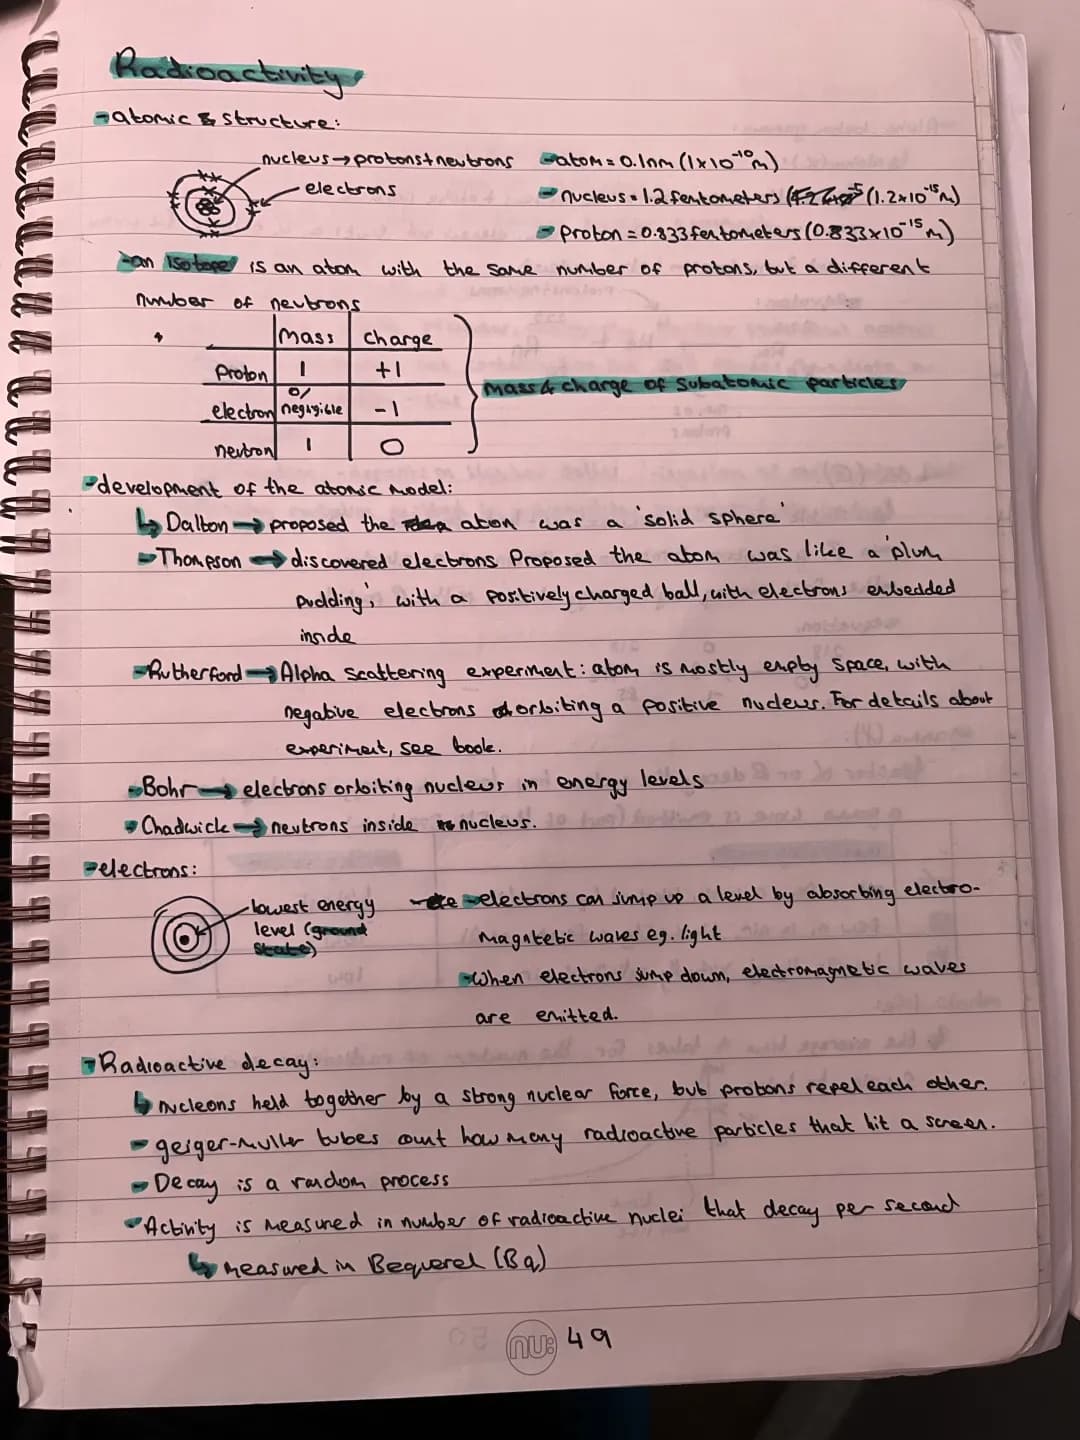 Radioactivity
- atomic & structure:
nucleus → protons + neutrons
electrons
- atom = 0.1nm (1x10⁻¹⁰m)
- nucleus = 1.2 femtometers (1.2x10⁻¹⁵m)
- proton = 0.833 femtometers (0.833x10⁻¹⁵m)
- an isotope is an atom with the same number of protons, but a different
number of neutrons
mass charge
proton 1 +1
electron 0/negligible -1
neutron 1 0
mass & charge of subatomic particles
- development of the atomic model:
↳ Dalton → proposed the atom was a 'solid sphere'
- Thompson → discovered electrons Proposed the atom was like a 'plum
pudding', with a positively charged ball, with electrons embedded
inside
- Rutherford → Alpha scattering experiment: atom is mostly empty space, with
negative electrons orbiting a positive nucleus. For details about
experiment, see book.
- Bohr → electrons orbiting nucleus in energy levels
- Chadwick → neutrons inside nucleus.
- electrons:
lowest energy
level (ground
state)
- electrons can jump up a level by absorbing electro-
magnetic waves eg. light
- When electrons jump down, electromagnetic waves
are emitted.
- Radioactive decay:
↳ nucleons held together by a strong nuclear force, but protons repel each other.
- geiger-muller tubes count how many radioactive particles that hit a screen.
- Decay is a random process
- Activity is measured in number of radioactive nuclei that decay per second
↳ measured in Bequerel (Bq)
nu: 49